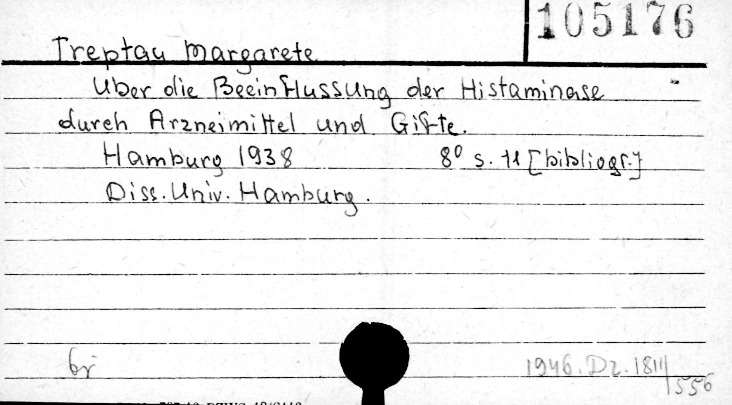 105176
Treptau Margarete
Über die Beeinflussung der Histaminase
durch Arzneimittel und Gifte.
Hamburg 1938 8° s. 71 [bibliogr.]
Diss. Univ. Hamburg.
br
1946. Dz. 1811/556